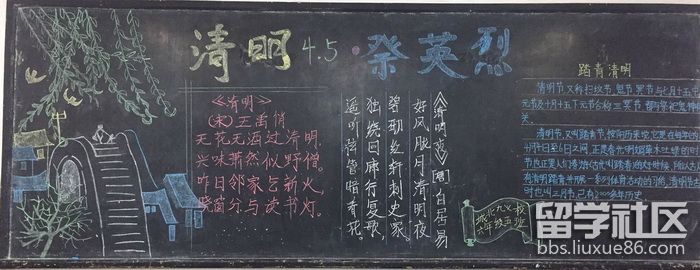 清明 4.5·祭英烈
《清明》
(宋)王禹偁
无花无酒过清明,
兴味萧然似野僧。
昨日邻家乞新火,
晓窗分与读书灯。
《清明夜》[唐]白居易
好风胧月清明夜
碧砌红轩刺史家。
独绕回廊行复歇,
遥听弦管暗看花。
踏青清明
清明节,又称扫坟节、鬼节、冥节与七月十五中
元节及十月十五下元节合称三冥节,都与祭祀鬼神有
关。
清明节,又叫踏青节,按阳历来说,它是在每年的
4月4日至6日之间,正是春光明媚草木吐绿的时
节,也正是人们春游(古代叫踏青)的好时候,所以古人
有清明踏青,并开展一系列体育活动的习俗,清明在古
时也叫三月节,已有2000多年历史
城北九义校
六年级五班
留学社区
bbs.liuxue86.com